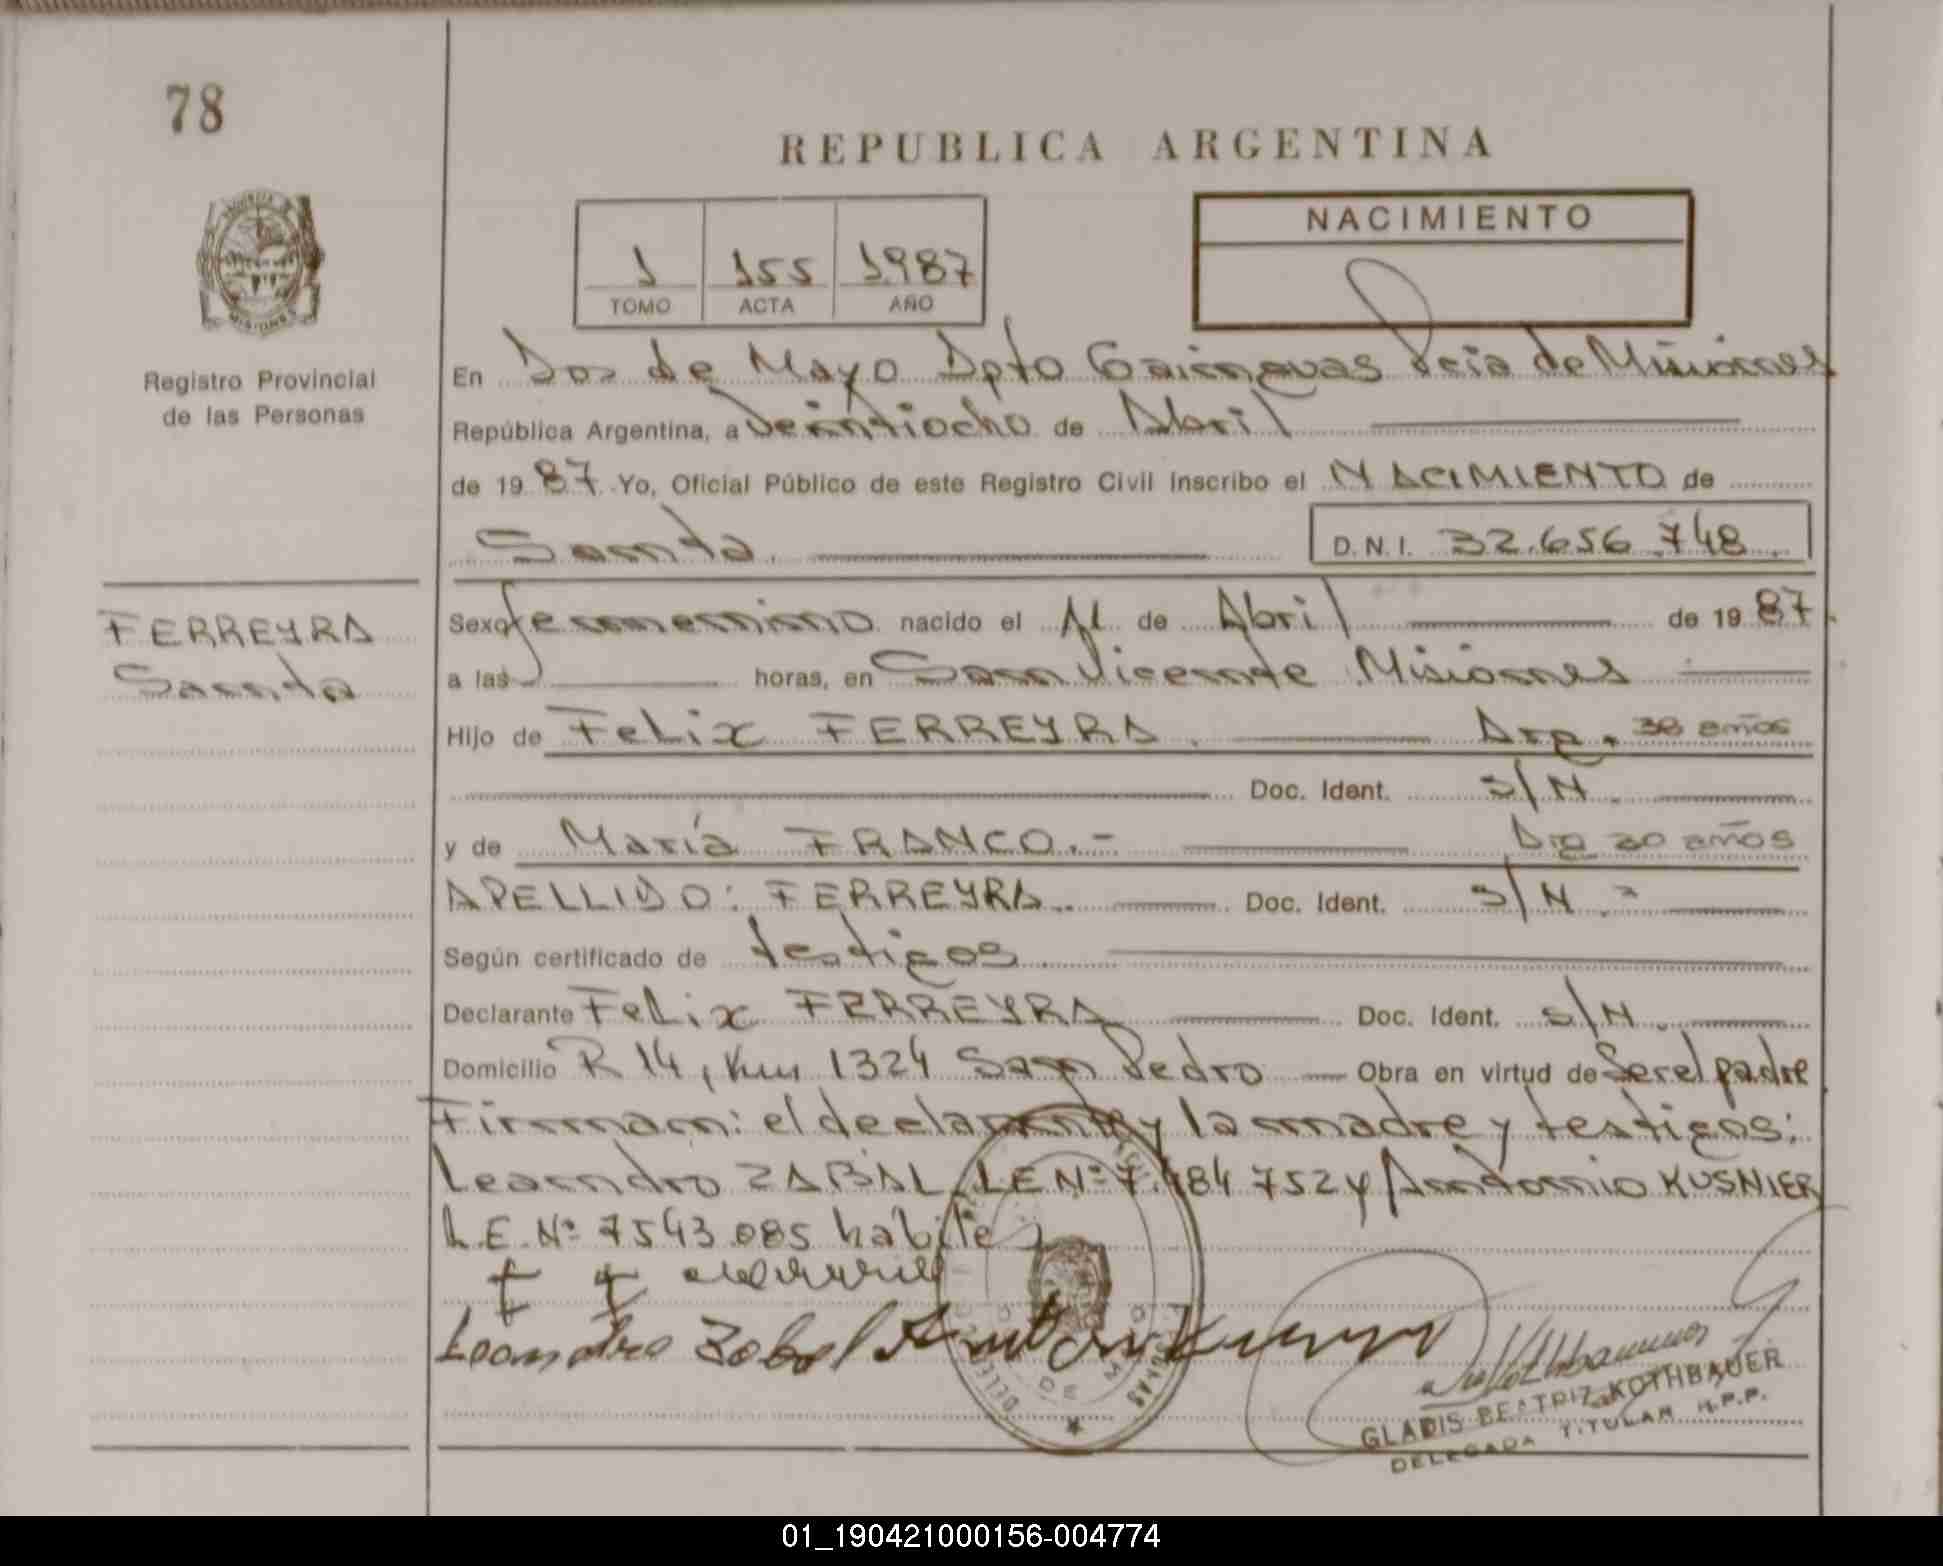 78
REPUBLICA ARGENTINA
MISIONES
Registro Provincial
de las Personas
1 155 1987
TOMO ACTA AÑO
NACIMIENTO
En Dos de Mayo Dpto Cainguas Pcia de Misiones
República Argentina, a veintiocho de Abril
de 19 87 Yo, Oficial Público de este Registro Civil inscribo el NACIMIENTO de
Santa
D.N.I. 32.656.748
FERREYRA
Santa
Sexo femenino nacido el 11 de Abril de 19 87.
a las horas, en San Vicente Misiones
Hijo de Felix FERREYRA. Arg. 38 años
Doc. Ident. S/N.
y de María FRANCO.- Arg 20 años
APELLIDO: FERREYRA.. Doc. Ident. S/N.-
Según certificado de testigos
Declarante Felix FERREYRA Doc. Ident. S/N.
Domicilio R 14, Km 1324 San Pedro Obra en virtud de Ser el padre
Firman: el declarante y la madre y testigos:
Leandro ZABAL, LE Nº 7.484 752 y Antonio KUSNIER
L.E. Nº 7543.085 habiles
Leandro Zabal
GLADIS BEATRIZ KOTHBAUER
DELEGADA TITULAR R.P.P.
01_190421000156-004774